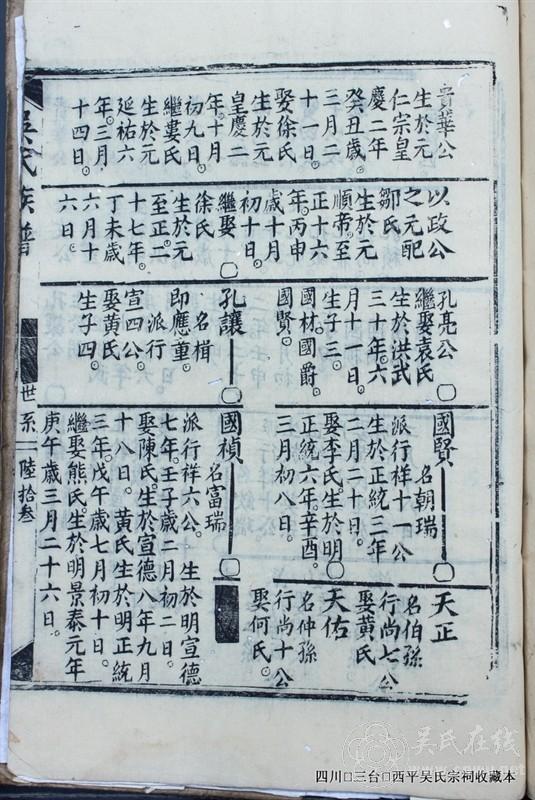 貴華公
生於元
仁宗皇
慶二年
癸丑歲。
三月二
十一日。
娶徐氏
生於元
皇慶二
年。十月
初九日。
繼婁氏
生於元
延祐六
年。三月
十四日。
以政公
之元配
鄒氏
生於元
順帝。至
正十六
年。丙申
歲十月
初十日。
繼娶
徐氏
生於元
至正二
十七年。
丁未歲
六月十
六日。
孔亮公
繼娶袁氏
生於洪武
三十年。六
月十一日。
生子三。
國材。國爵。
國賢。
孔讓
名楫
即應童。
派行
宣一四公。
娶黃氏
生子四。
國賢
名朝瑞
派行祥十一公
生於正統三年
二月二十日。
娶李氏。生於明
正統六年。辛酉。
三月初八日。
國禎
名富瑞
派行祥六公。生於明宣德
七年。壬子歲二月初二日。
娶陳氏。生於宣德八年九月
十八日。黃氏生於明正統
三年。戊午歲七月初十日。
繼娶熊氏。生於明景泰元年
庚午歲三月二十六日。
天正
名伯孫
行尚七公
娶黃氏
天佑
名仲孫
行尚十公
娶何氏。
吳氏族譜
世系
陸拾叁
吴氏在线
www.cnwu.net
四川□三台□西平吴氏宗祠收藏本